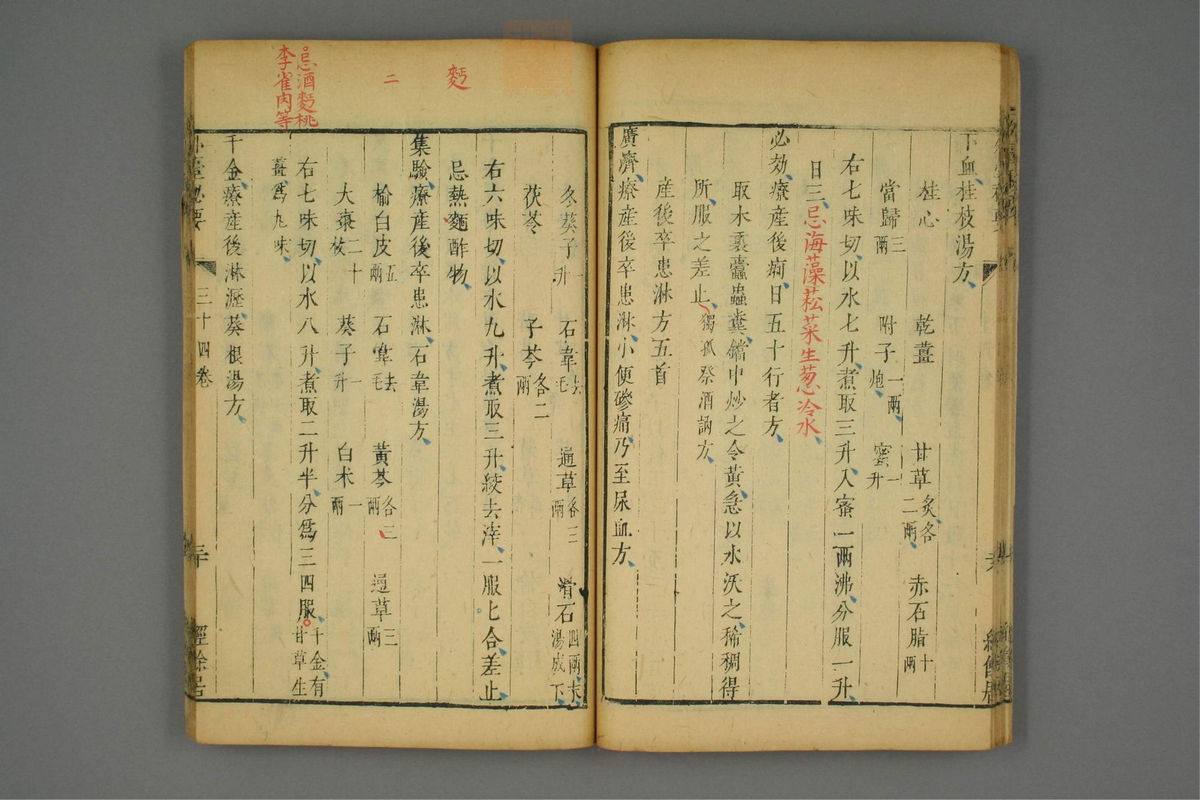 下血桂枝湯方
桂心 乾薑 甘草炙各二兩 赤石脂十兩
當歸三兩 附子一兩炮 蜜一升
右七味切以水七升煮取三升入蜜一兩沸分服一升
日三忌海藻菘菜生葱冷水
必効療産後痢日五十行者方
取木裏蠹蟲糞鐺中炒之令黃急以水沃之稀稠得
所服之差止獨孤祭酒訥方
産後卒患淋方五首
廣濟療産後卒患淋小便磣痛乃至尿血方
冬葵子一升 石韋去毛 通草各三兩 滑石四兩末湯成下
茯苓 子芩各二兩
右六味切以水九升煮取三升絞去滓一服七合差止
忌熱麵酢物
集驗療産後卒患淋石韋湯方
榆白皮五兩 石韋去毛 黃芩各二兩 通草三兩
大棗二十枚 葵子一升 白朮一兩
右七味切以水八升煮取二升半分爲三四服千金有甘草生
薑爲九味
千金療産後淋瀝葵根湯方
外臺秘要 三十四卷 三十 經餘居
麪
二
忌酒麪桃
李雀肉等